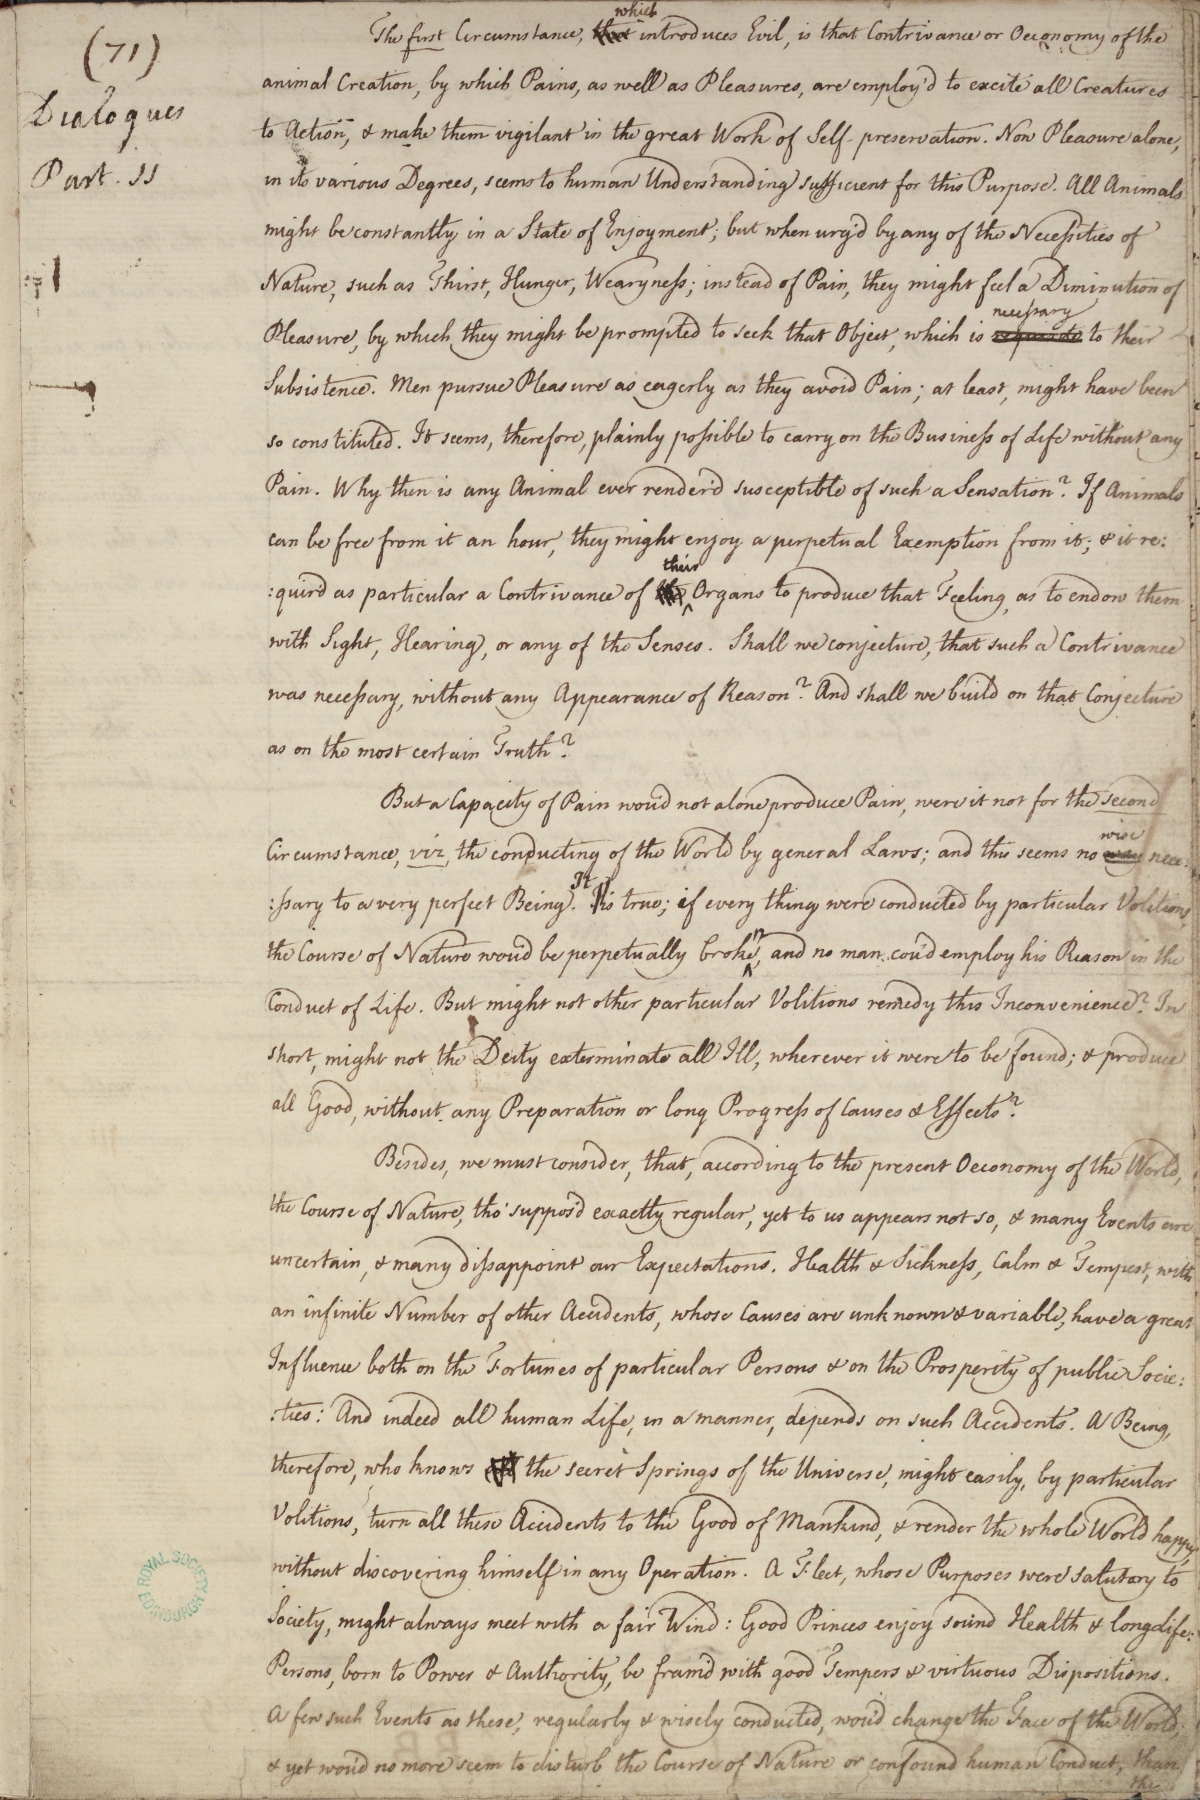 (71)
Dialogues
Part. 11
The first Circumstance, which introduces Evil, is that Contrivance or Oeconomy of the
animal Creation, by which Pains, as well as Pleasures, are employ'd to excite all Creatures
to Action, & make them vigilant in the great Work of Self-preservation. Now Pleasure alone,
in its various Degrees, seems to human Understanding sufficient for this Purpose. All Animals
might be constantly in a State of Enjoyment; but when urg'd by any of the Necessities of
Nature, such as Thirst, Hunger, Weariness; instead of Pain, they might feel a Diminution of
Pleasure, by which they might be prompted to seek that Object, which is requisite necessary to their
Subsistence. Men pursue Pleasure as eagerly as they avoid Pain; at least, might have been
so constituted. It seems, therefore, plainly possible to carry on the Business of Life without any
Pain. Why then is any Animal ever render'd susceptible of such a Sensation? If Animals
can be free from it an hour, they might enjoy a perpetual Exemption from it; & it re:
:quir'd as particular a Contrivance of their Organs to produce that Feeling, as to endow them
with Sight, Hearing, or any of the Senses. Shall we conjecture, that such a Contrivance
was necessary, without any Appearance of Reason? And shall we build on that Conjecture
as on the most certain Truth?
But a Capacity of Pain wou'd not alone produce Pain, were it not for the second
Circumstance, viz, the conducting of the World by general Laws; and this seems no way wise nece:
:ssary to a very perfect Being. It is true; if every thing were conducted by particular Volitions,
the Course of Nature wou'd be perpetually broken, and no man cou'd employ his Reason in the
Conduct of Life. But might not other particular Volitions remedy this Inconvenience? In
short, might not the Deity exterminate all Ill, wherever it were to be found; & produce
all Good, without any Preparation or long Progress of Causes & Effects?
Besides, we must consider, that, according to the present Oeconomy of the World,
the Course of Nature, tho' suppos'd exactly regular, yet to us appears not so, & many Events are
uncertain, & many dissappoint our Expectations. Health & Sickness, Calm & Tempest, with
an infinite Number of other Accidents, whose Causes are unknown & variable, have a great
Influence both on the Fortunes of particular Persons & on the Prosperity of public Socie:
:ties: And indeed all human Life, in a manner, depends on such Accidents. A Being,
therefore, who knows the secret Springs of the Universe, might easily, by particular
Volitions, turn all these Accidents to the Good of Mankind, & render the whole World happy,
without discovering himself in any Operation. A Fleet, whose Purposes were salutary to
Society, might always meet with a fair Wind: Good Princes enjoy sound Health & long Life:
Persons, born to Power & Authority, be fram'd with good Tempers & virtuous Dispositions.
A few such Events as these, regularly & wisely conducted, wou'd change the Face of the World;
& yet wou'd no more seem to disturb the Course of Nature or confound human Conduct, than
the
ROYAL SOCIETY
EDINBURGH